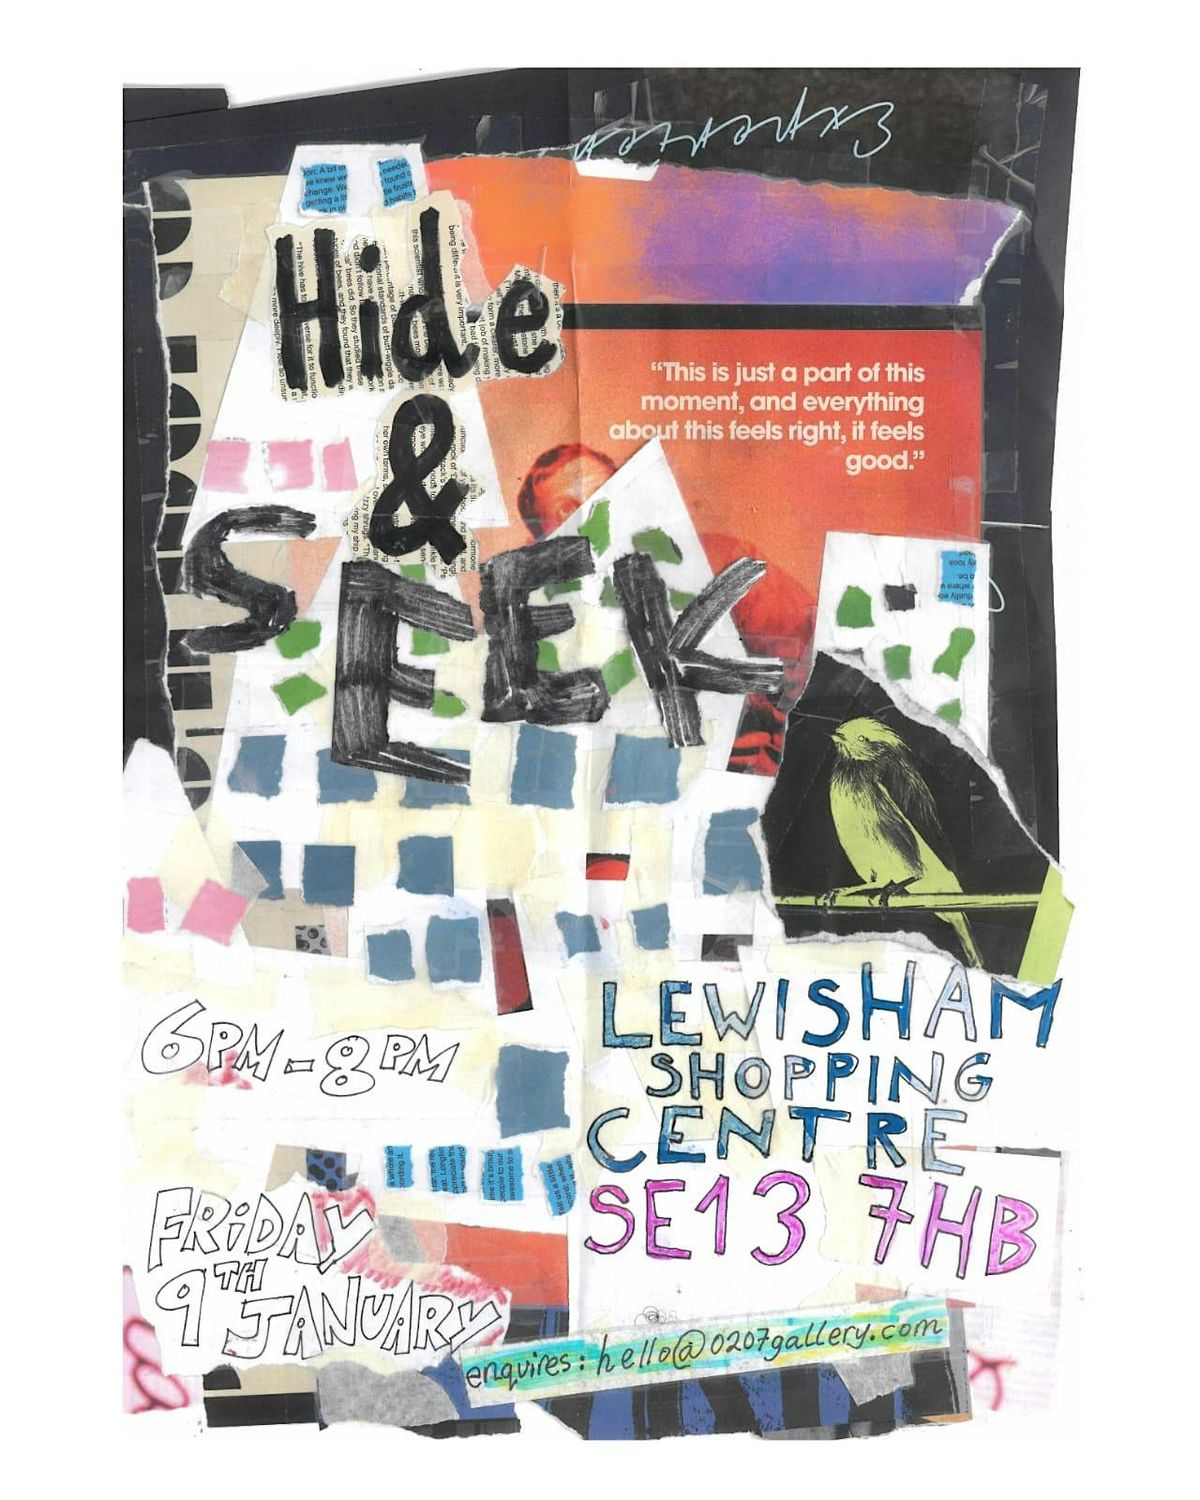 Hide
&
SEEK
“This is just a part of this
moment, and everything
about this feels right, it feels
good.”
6PM - 8PM
LEWISHAM
SHOPPING
CENTRE
SE13 7HB
FRiDAY
9TH
JANUARY
enquires: hello@0207gallery.com